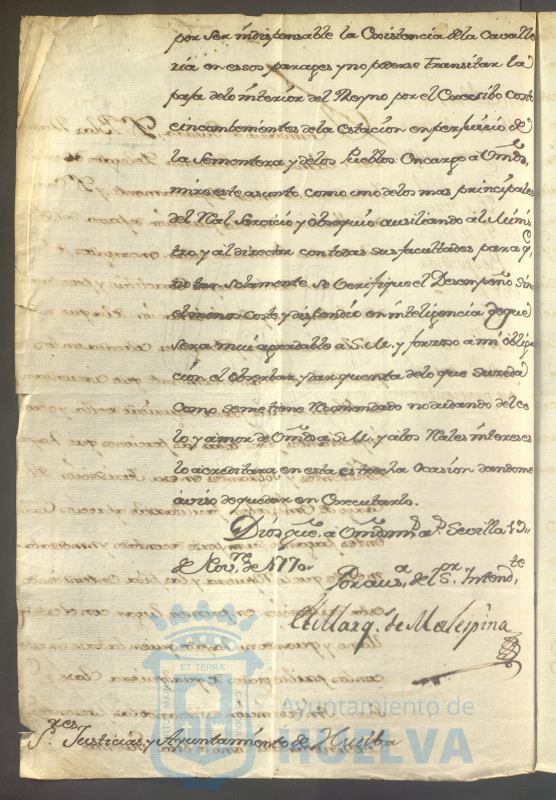 por ser indispensable la Existencia dela Cavalle
ria en essos parages y no poderse transitar la
paja delo interior del Reyno por el Excesibo Coste
cimiento de la Estacion en perjuicio de
la Sementera y delos Pueblos. Encargo a Vmds,
mire este asunto como uno delos mas principales
del Rl. Servicio y obsequio ausiliando al Minis
tro, y al director con todas sus facultades para q.e
no tan Solamente se Verifique el Desempeño Sino
el menos coste y dispendio en inteligencia de que
sera mui agradable a S.M. y forzoso a mi obliga
cion el obserbar, y dar quenta delo que suceda
como se me tiene Recomendado no dudando del ce
lo y amor de Vmds a S.M. y alos Rales intereses
lo acreditara en esta estrecha Ocasion dandome
aviso de quedar en Executarlo.
Dios gue. a Vmds m.s a.s Sevilla 13
de Nov.re de 1770
Por aus.a del S.or Intend.te
El Marq.s de Malespina
S.res Justicias, y Ayuntamiento de Huelba
ET TERRÆ
Ayuntamiento de
HUELVA